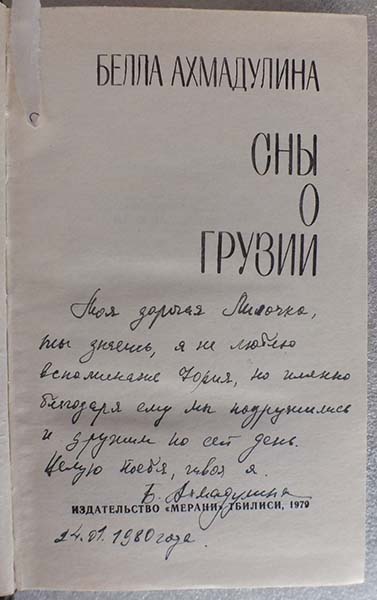 БЕЛЛА АХМАДУЛИНА
СНЫ
О
ГРУЗИИ
Моя дорогая Милочка,
ты знаешь, я не люблю
вспоминание Юрия, но именно
благодаря ему мы подружились
и дружим по сей день.
Целую тебя, твоя я.
Б. Ахмадулина
ИЗДАТЕЛЬСТВО «МЕРАНИ» ТБИЛИСИ, 1979
24.01.1980 года.